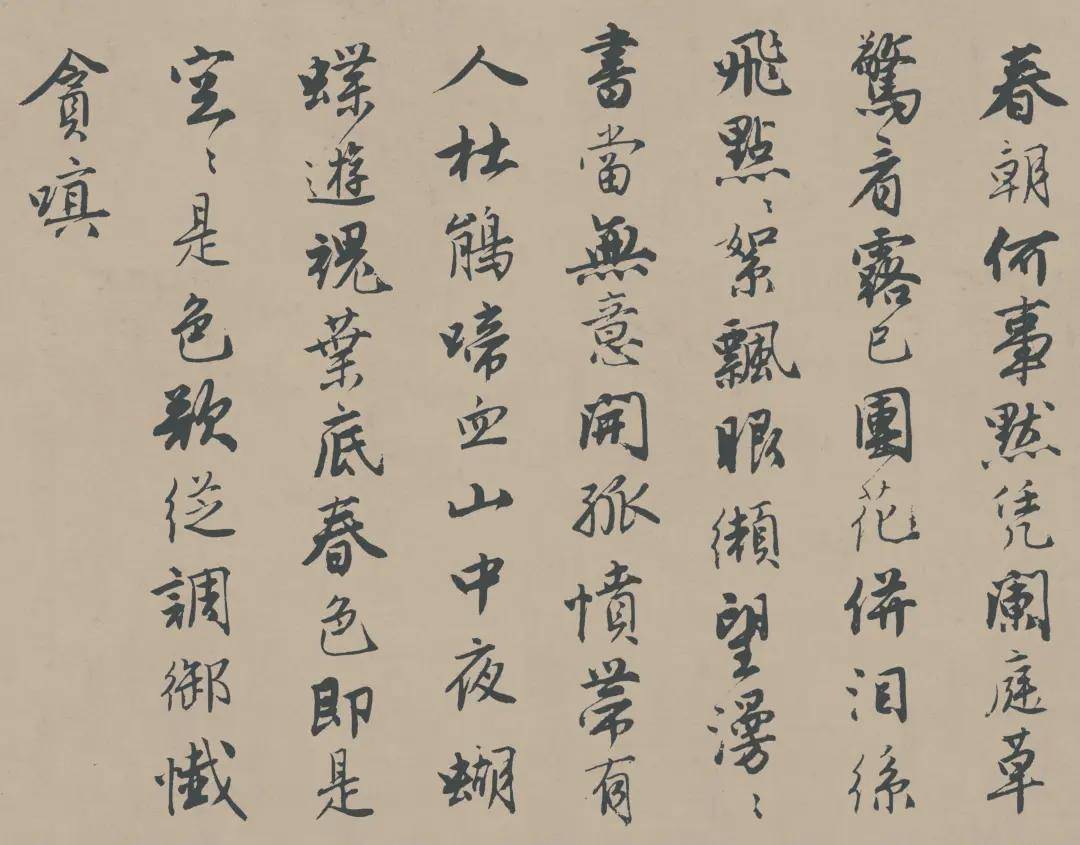 春朝何事默凭闌庭草
驚看露已團花併泪係
飛點〻絮飄眼纈望漫〻
書當無意開孤憤帶有
人杜鵑啼血山中夜蝴
蝶遊魂葉底春色即是
空〻是色欲從調御懺
貪嗔